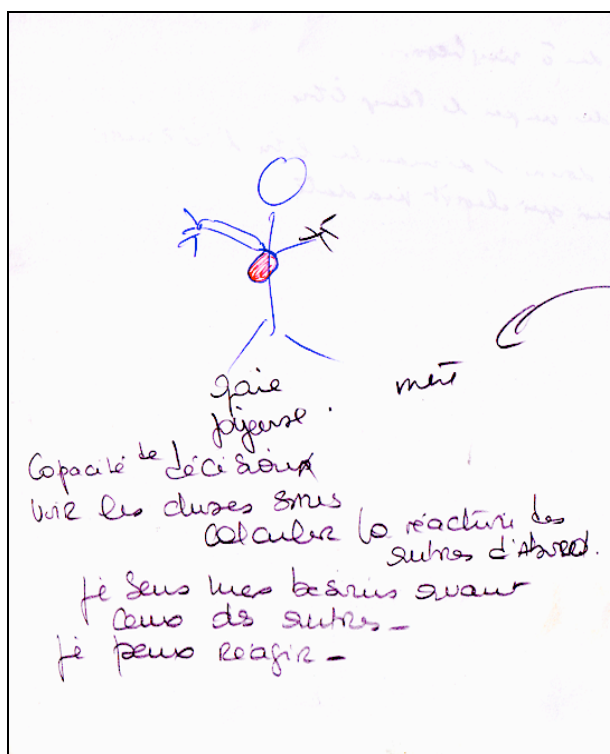 gaie
joyeuse.
Capacité de décision
voir les choses sans
calculer la réaction des
autres d'abord.
je sens mes besoins avant
ceux des autres_
je peux réagir_